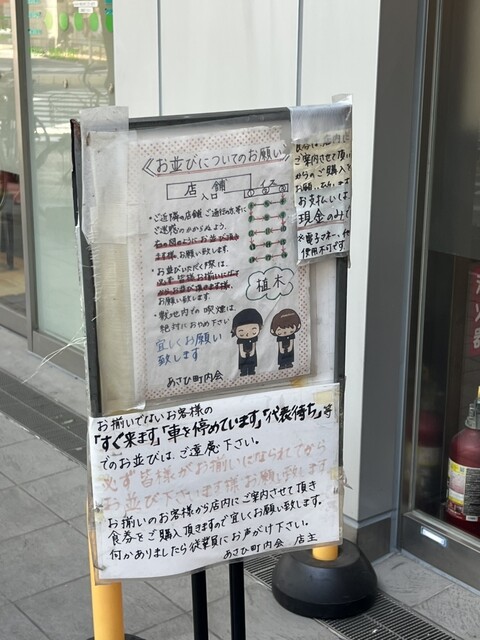 《お並びについてのお願い》
店舗
入口
イス
・ご近隣の店舗、ご通行の方等に
ご迷惑のかからぬよう、
右の図のようにお並び頂き
ます様、お願い致します。
・お並びいただく際は、
必ず皆様お揃いになって
からお並び頂きます様、
お願い致します。
・敷地内での喫煙は、
絶対におやめ下さい
宜しくお願い
致します
植木
あさひ町内会
ご案内させて頂い
からのご購入
お願いします
お支払いは、
現金のみで
※電子マネー、
使用不可です
お揃いではないお客様の
「すぐ来ます」「車を停めています」「代表待ち」等
でのお並びは、ご遠慮下さい。
必ず皆様がお揃いになられてから
お並び下さいます様お願い致します
お揃いのお客様から店内にご案内させて頂き
食券をご購入頂きますので宜しくお願い致します。
何かありましたら従業員にお声がけ下さい。
あさひ町内会 店主